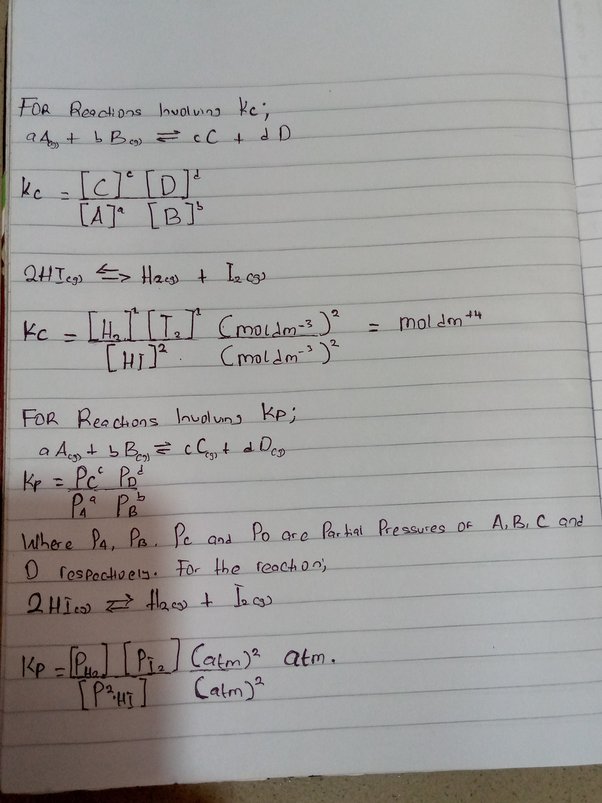 FOR Reactions Involving Kc;
aA(g) + bB(g) ⇌ cC + dD
Kc = [C]^c [D]^d / [A]^a [B]^b
2HI(g) ⇌ H2(g) + I2(g)
Kc = [H2]^1 [I2]^1 / [HI]^2 (moldm^-3)^2 / (moldm^-3)^2 = moldm^+4
FOR Reactions Involving Kp;
aA(g) + bB(g) ⇌ cC(g) + dD(g)
Kp = PC^c PD^d / PA^a PB^b
Where PA, PB, Pc and PD are Partial Pressures of A, B, C and
D respectively. For the reaction;
2HI(g) ⇌ H2(g) + I2(g)
Kp = [PH2] [PI2] / [P^2.HI] (atm)^2 / (atm)^2 atm.